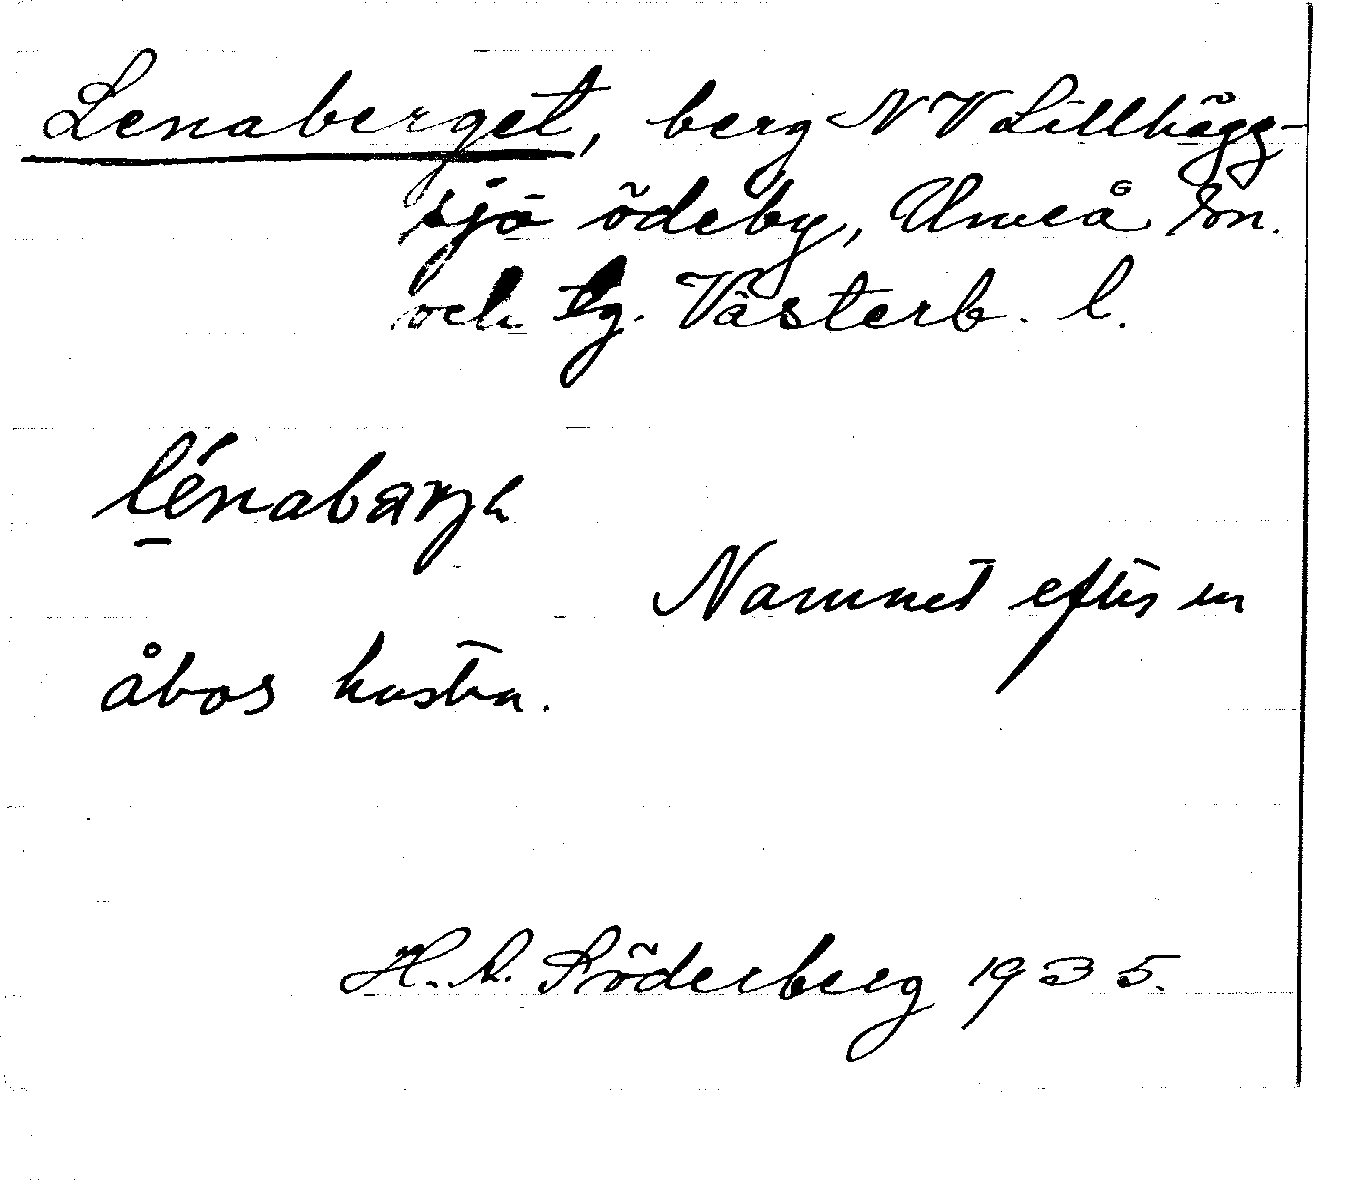 Lenaberget, berg NV Lillhägg-
sjö ödeby, Umeå sn.
och tg. Västerb. l.
lénabarjɛ
Namnet efter en
åbos hustru.
H. A. Söderberg 1935.